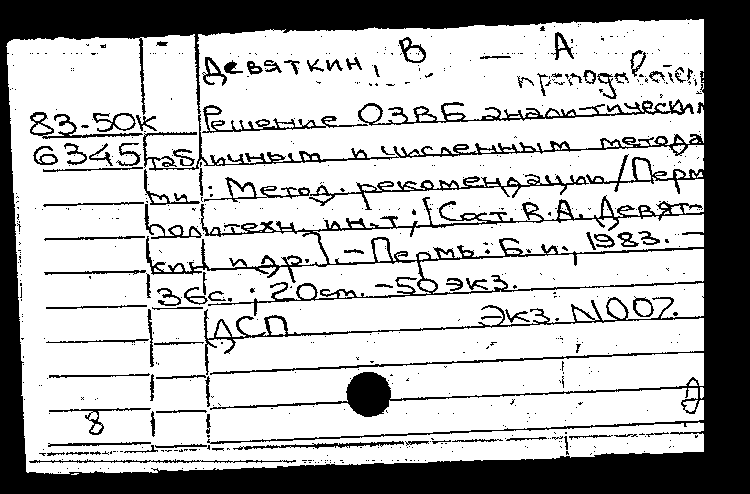 Девяткин, В — А
преподаватель
83-50к Решение ОЗВБ аналитическим
6345 табличным и численным метода
ми : Метод. рекомендации / Перм
политехн. ин.т ; [Сост. В.А. Девят-
кин и др.]. – Пермь : Б. и., 1983. –
36с. ; 20cm. – 50 экз.
ДСП. Экз. N007.
8